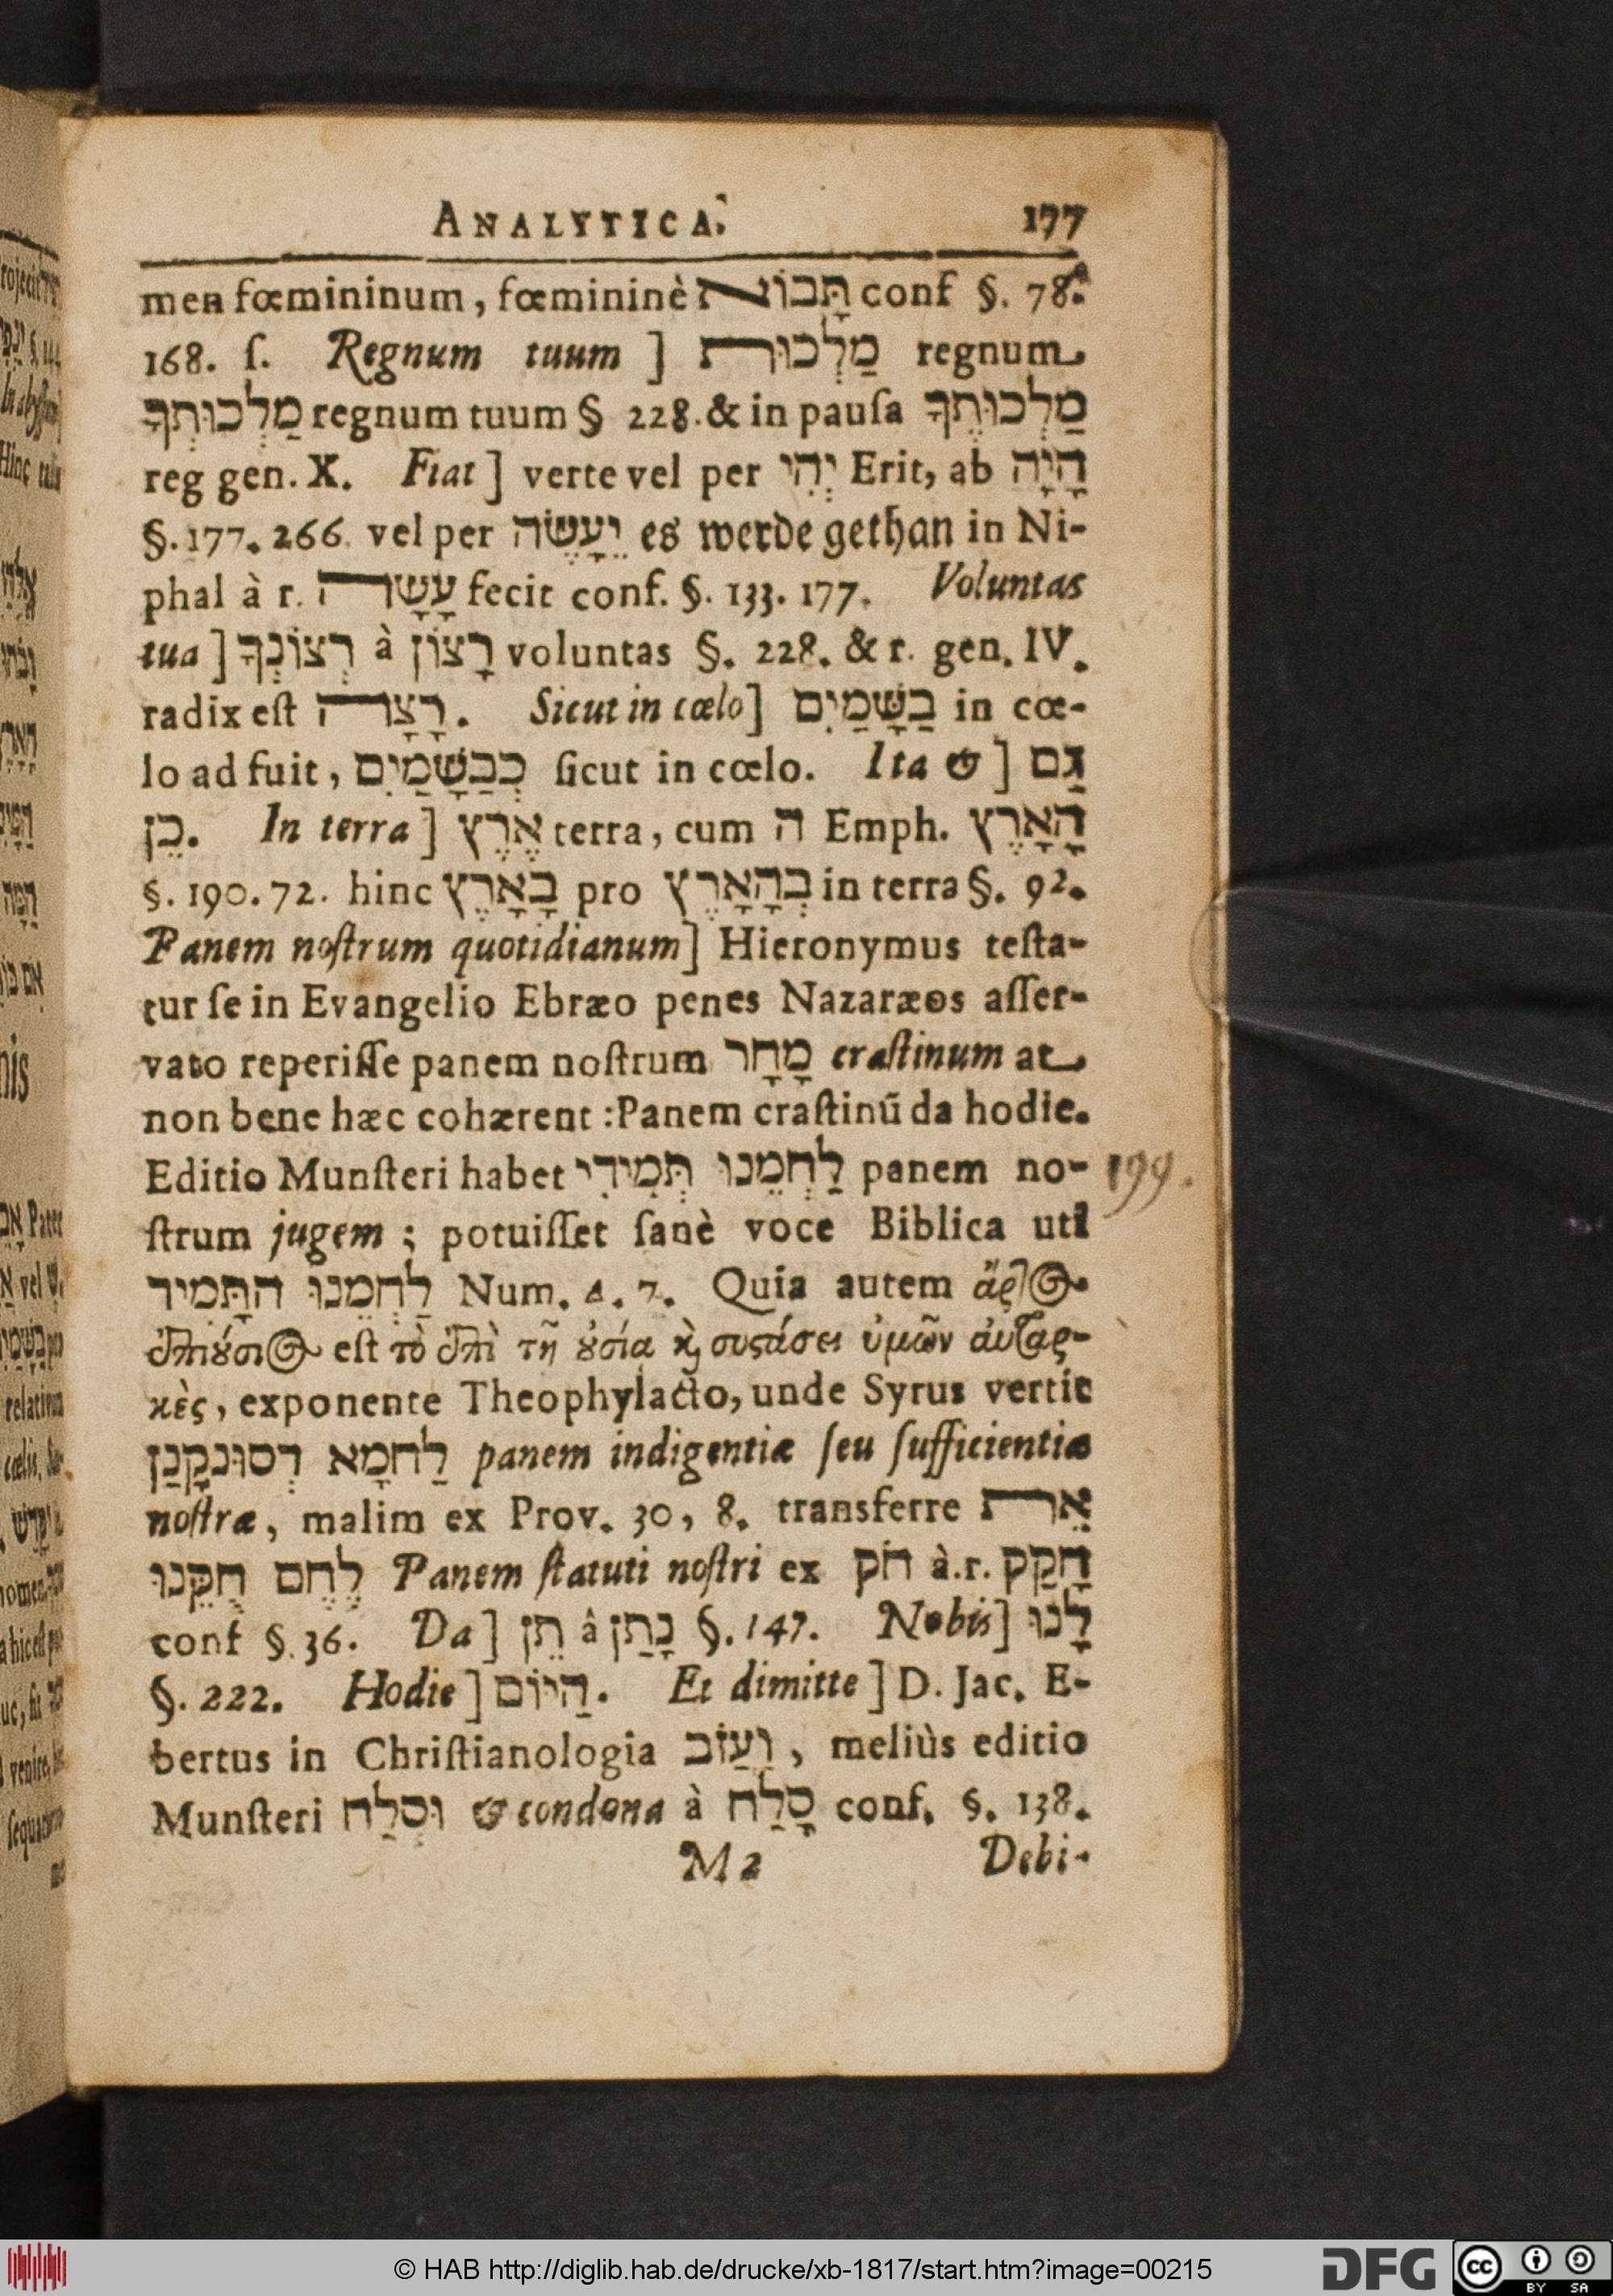 ANALYTICA. 177
men fœmininum, fœmininè תָּבוֹא conf §. 78.
168. ſ. Regnum tuum ] מַלְכוּת regnum
מַלְכוּתְךָ regnum tuum § 228. & in pauſa מַלְכוּתֶךָ
reg gen. X. Fiat ] verte vel per יְהִי Erit, ab הָיָה
§. 177. 266. vel per יֵעָשֶׂה es werde gethan in Ni-
phal à r. עָשָׂה fecit conf. §. 133. 177. Voluntas
tua ] רְצוֹנְךָ à רָצוֹן voluntas §. 228. & r. gen. IV.
radix eſt רָצָה. Sicut in cœlo] בַּשָּׁמַיִם in cœ-
lo ad fuit, כְּבַשָּׁמַיִם ſicut in cœlo. Ita & ] גַּם
כֵּן. In terra ] אֶרֶץ terra, cum ה Emph. הָאָרֶץ
§. 190. 72. hinc בָּאָרֶץ pro בְּהָאָרֶץ in terra §. 92.
Panem noſtrum quotidianum] Hieronymus teſta-
tur ſe in Evangelio Ebræo penes Nazaræos aſſer-
vato reperiſſe panem noſtrum מָחָר craſtinum at
non bene hæc cohærent : Panem craſtinũ da hodie.
Editio Munſteri habet לַחְמֵנוּ תְּמִידִי panem no-
199.
ſtrum jugem ; potuiſſet ſanè voce Biblica uti
לַחְמֵנוּ הַתָּמִיד Num. 4. 7. Quia autem ἄρτος
ἐπιούσιος eſt τὸ ἐπὶ τῇ οὐσίᾳ καὶ συστάσει ὑμῶν αὐταρ-
κὲς, exponente Theophylacto, unde Syrus vertit
לַחמָא דְסוּנקָנַן panem indigentiæ ſeu ſufficientiæ
noſtræ, malim ex Prov. 30, 8. transferre אֵת
לֶחֶם חֻקֵּנוּ Panem ſtatuti noſtri ex חֹק à. r. חָקַק
conf §. 36. Da ] תֵּן â נָתַן §. 147. Nobis] לָנוּ
§. 222. Hodie ] הַיּוֹם. Et dimitte ] D. Jac. E-
bertus in Chriſtianologia וַעֲזֹב, meliùs editio
Munſteri וּסְלַח & condona à סָלַח conf. §. 138.
M 2 Debi-
© HAB http://diglib.hab.de/drucke/xb-1817/start.htm?image=00215
DFG
cc BY SA